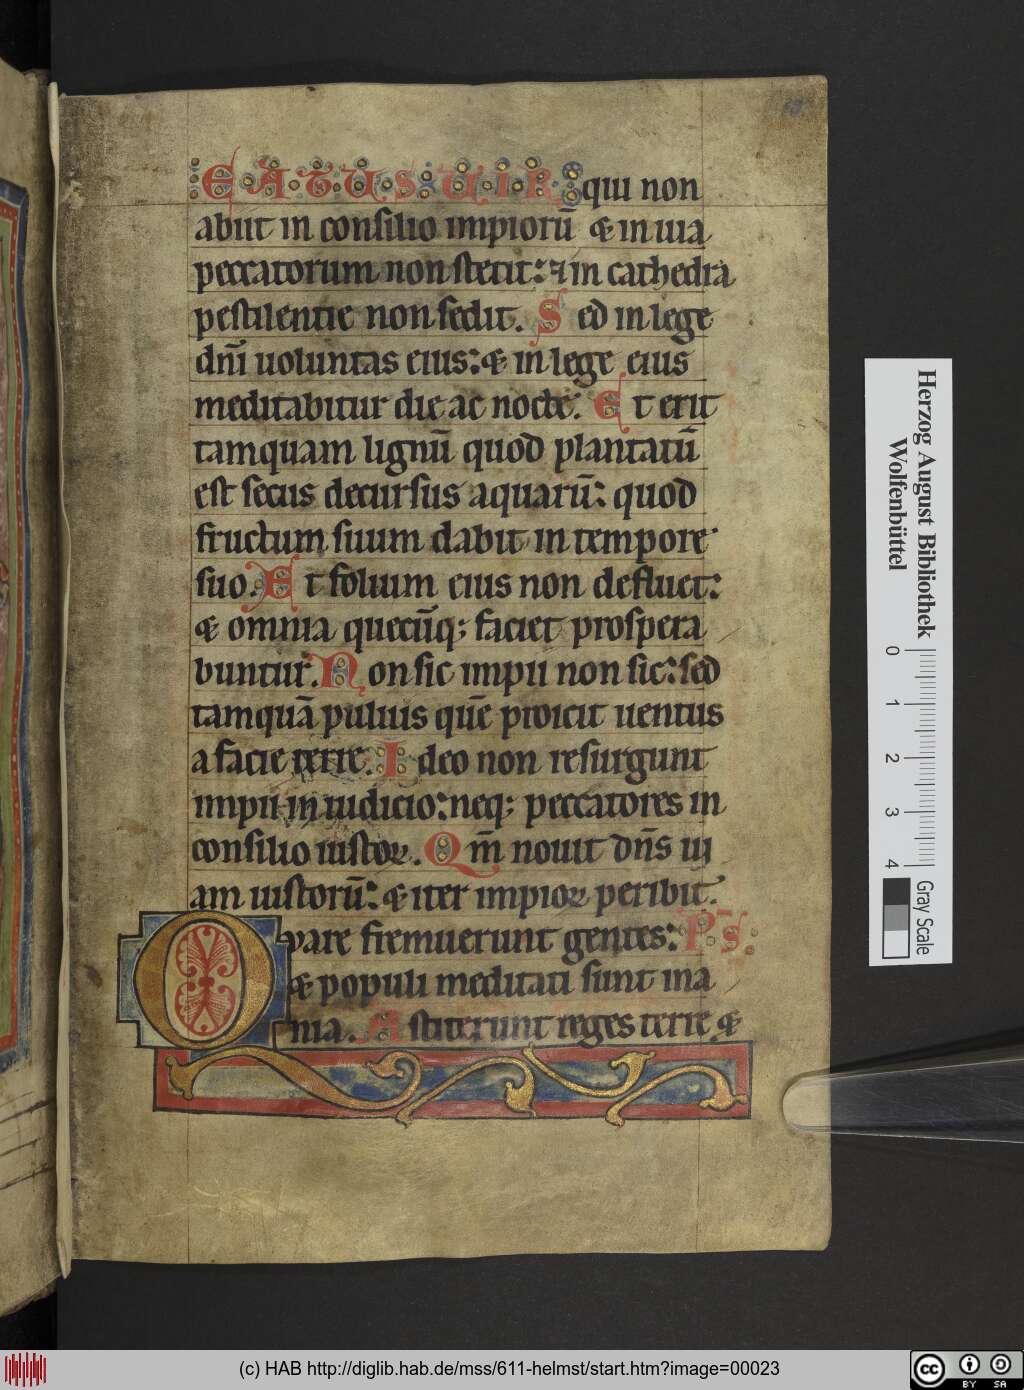 EATUS UIR qui non
abiit in consilio impiorū & in uia
peccatorum non stetit: ⁊ in cathedra
pestilentie non sedit. Sed in lege
dnī uoluntas eius: & in lege eius
meditabitur die ac nocte. Et erit
tamquam lignū quod plantatū
est secus decursus aquarū: quod
fructum suum dabit in tempore
suo. Et folium eius non defluet:
& omnia quecūq; faciet prospera
buntur. Non sic impii non sic: sed
tamquā puluis quē proicit uentus
a facie terre. Ideo non resurgunt
impii in iudicio: neq; peccatores in
consilio iustoꝝ. Qm̄ nouit dn̄s ui
am iustorū: & iter impioꝝ peribit.
Qvare fremuerunt gentes: Ps̄.
& populi meditati sunt ina
nia. Astiterunt reges terre &
Herzog August Bibliothek
Wolfenbüttel
0 1 2 3 4
Gray Scale
(c) HAB http://diglib.hab.de/mss/611-helmst/start.htm?image=00023
cc BY SA